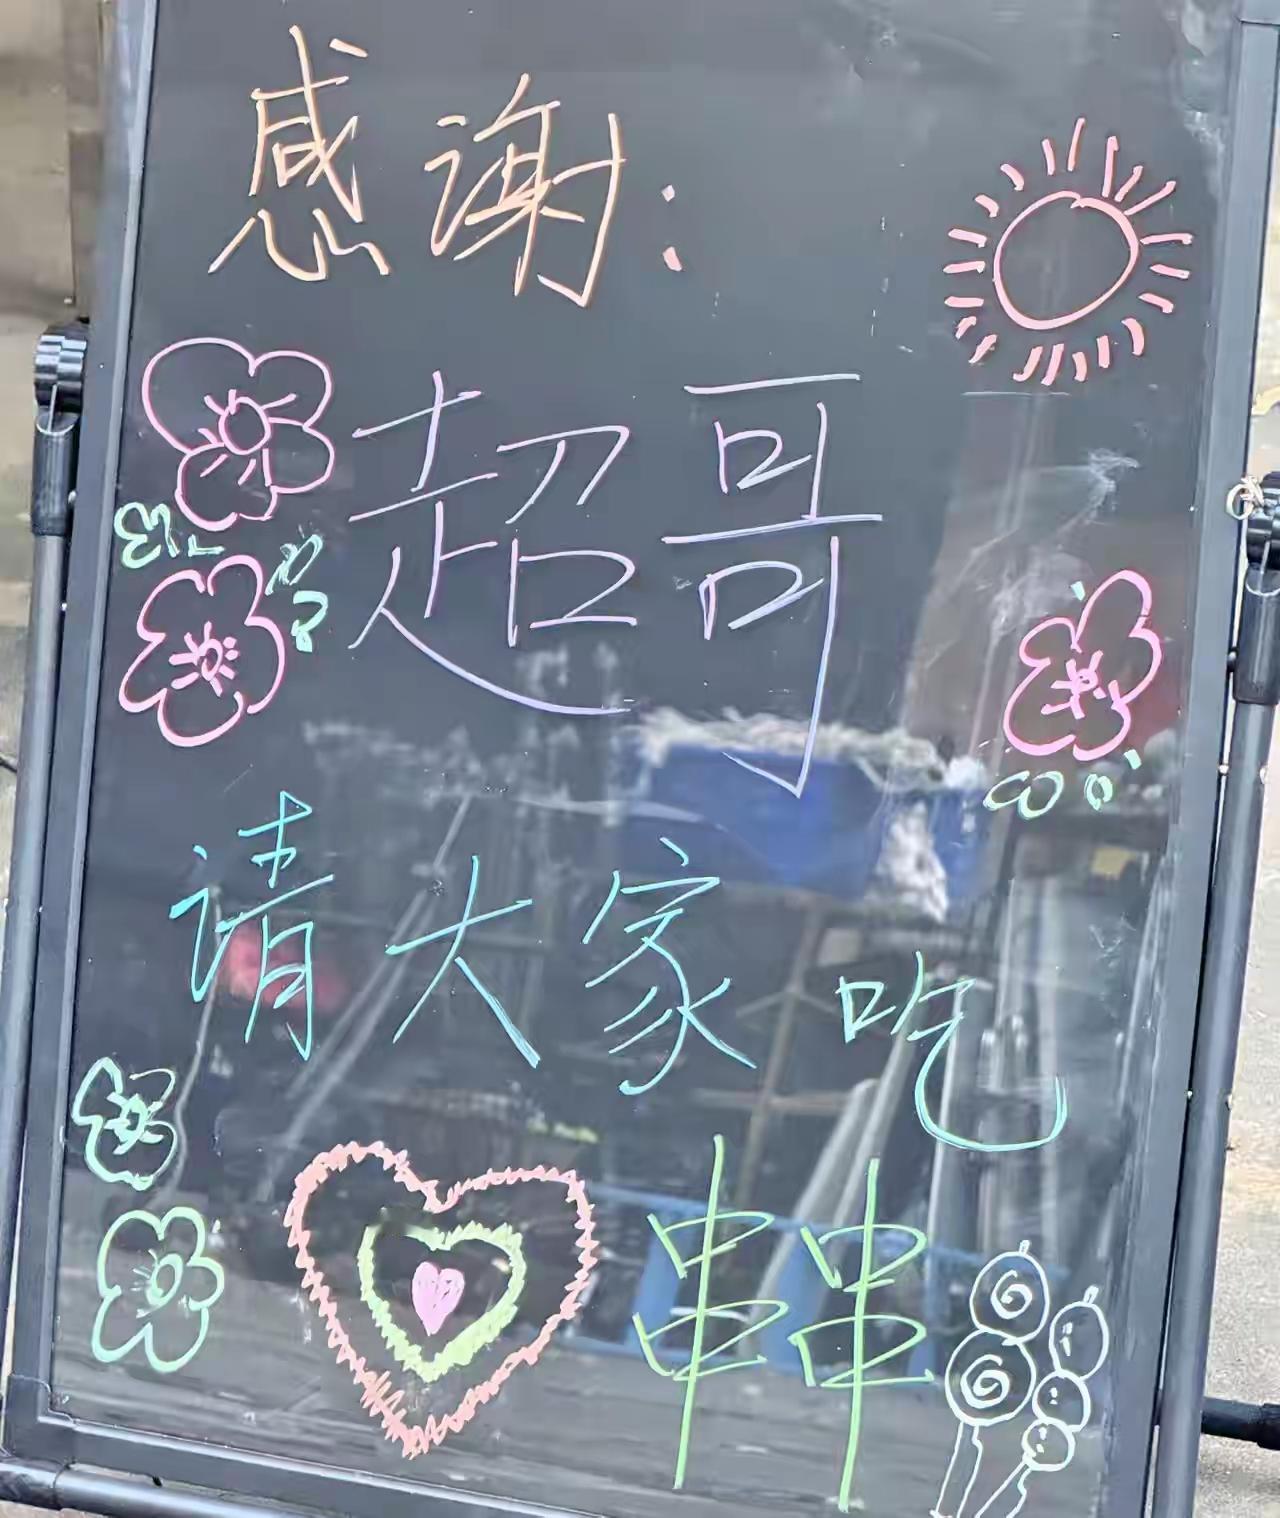 感谢:
超哥
请大家吃
串串